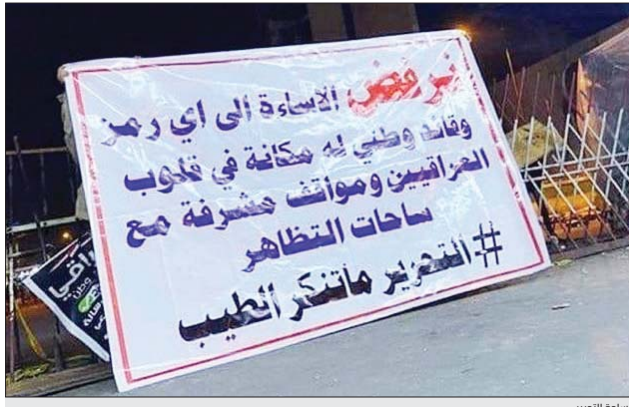 نرفض الاساءة الى اي رمز
وقائد وطني له مكانة في قلوب
العراقيين ومواقف مشرفة مع
ساحات التظاهر
#التحرير ماتنكر الطيب
وطن